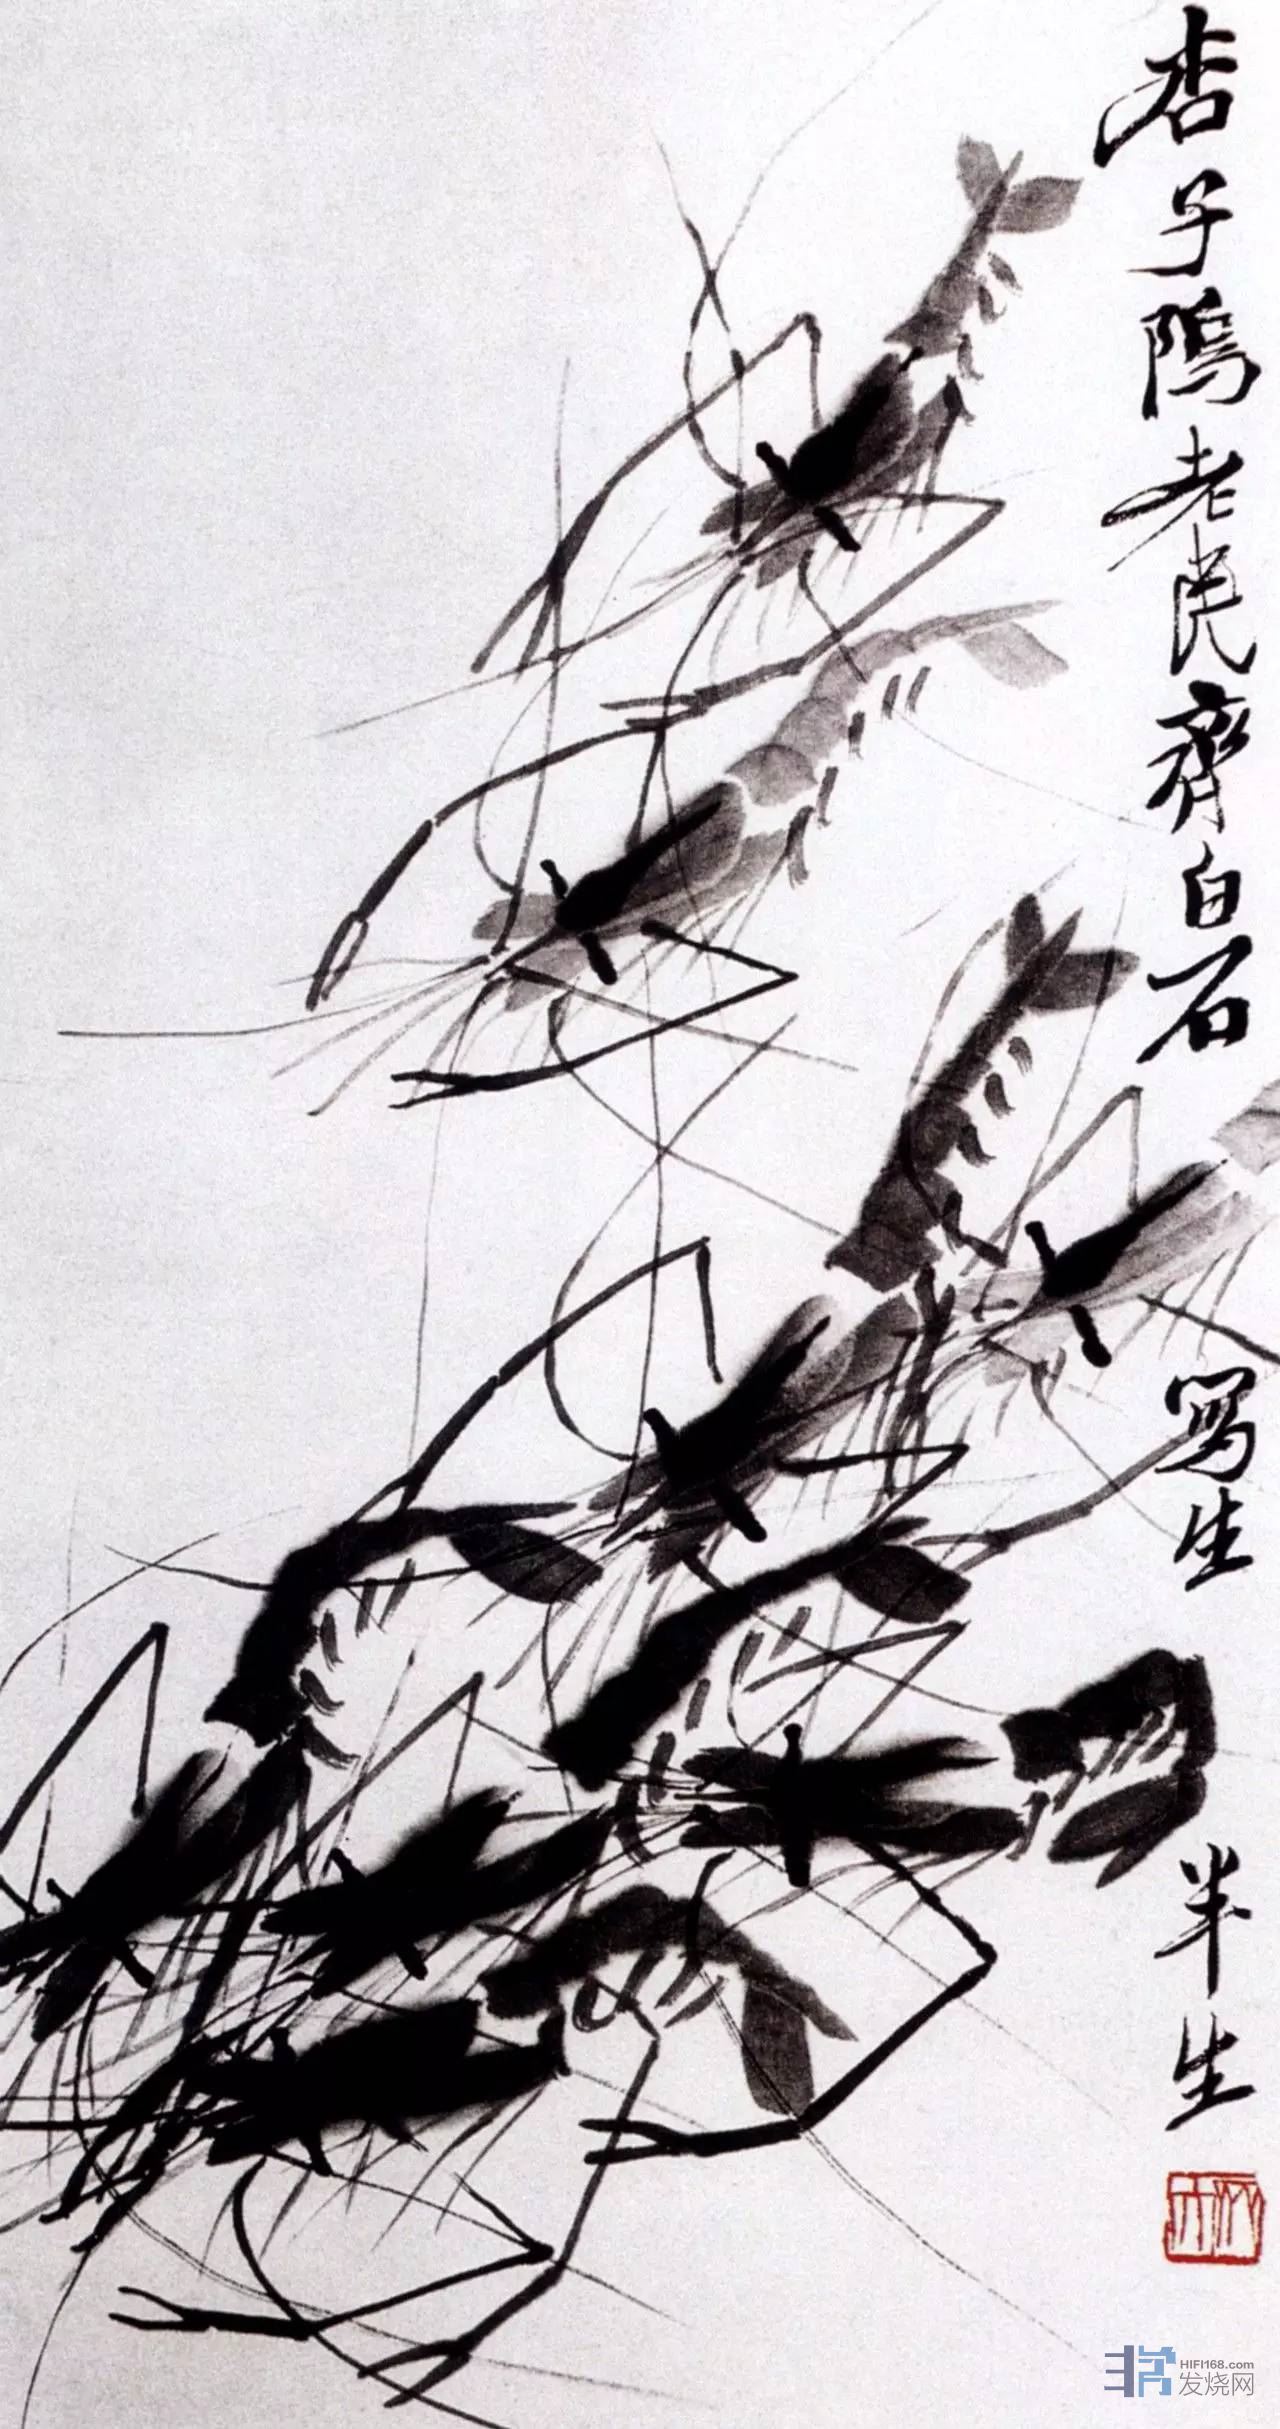 杏子隖老民齊白石寫生半生
HIFI168.com
发烧网